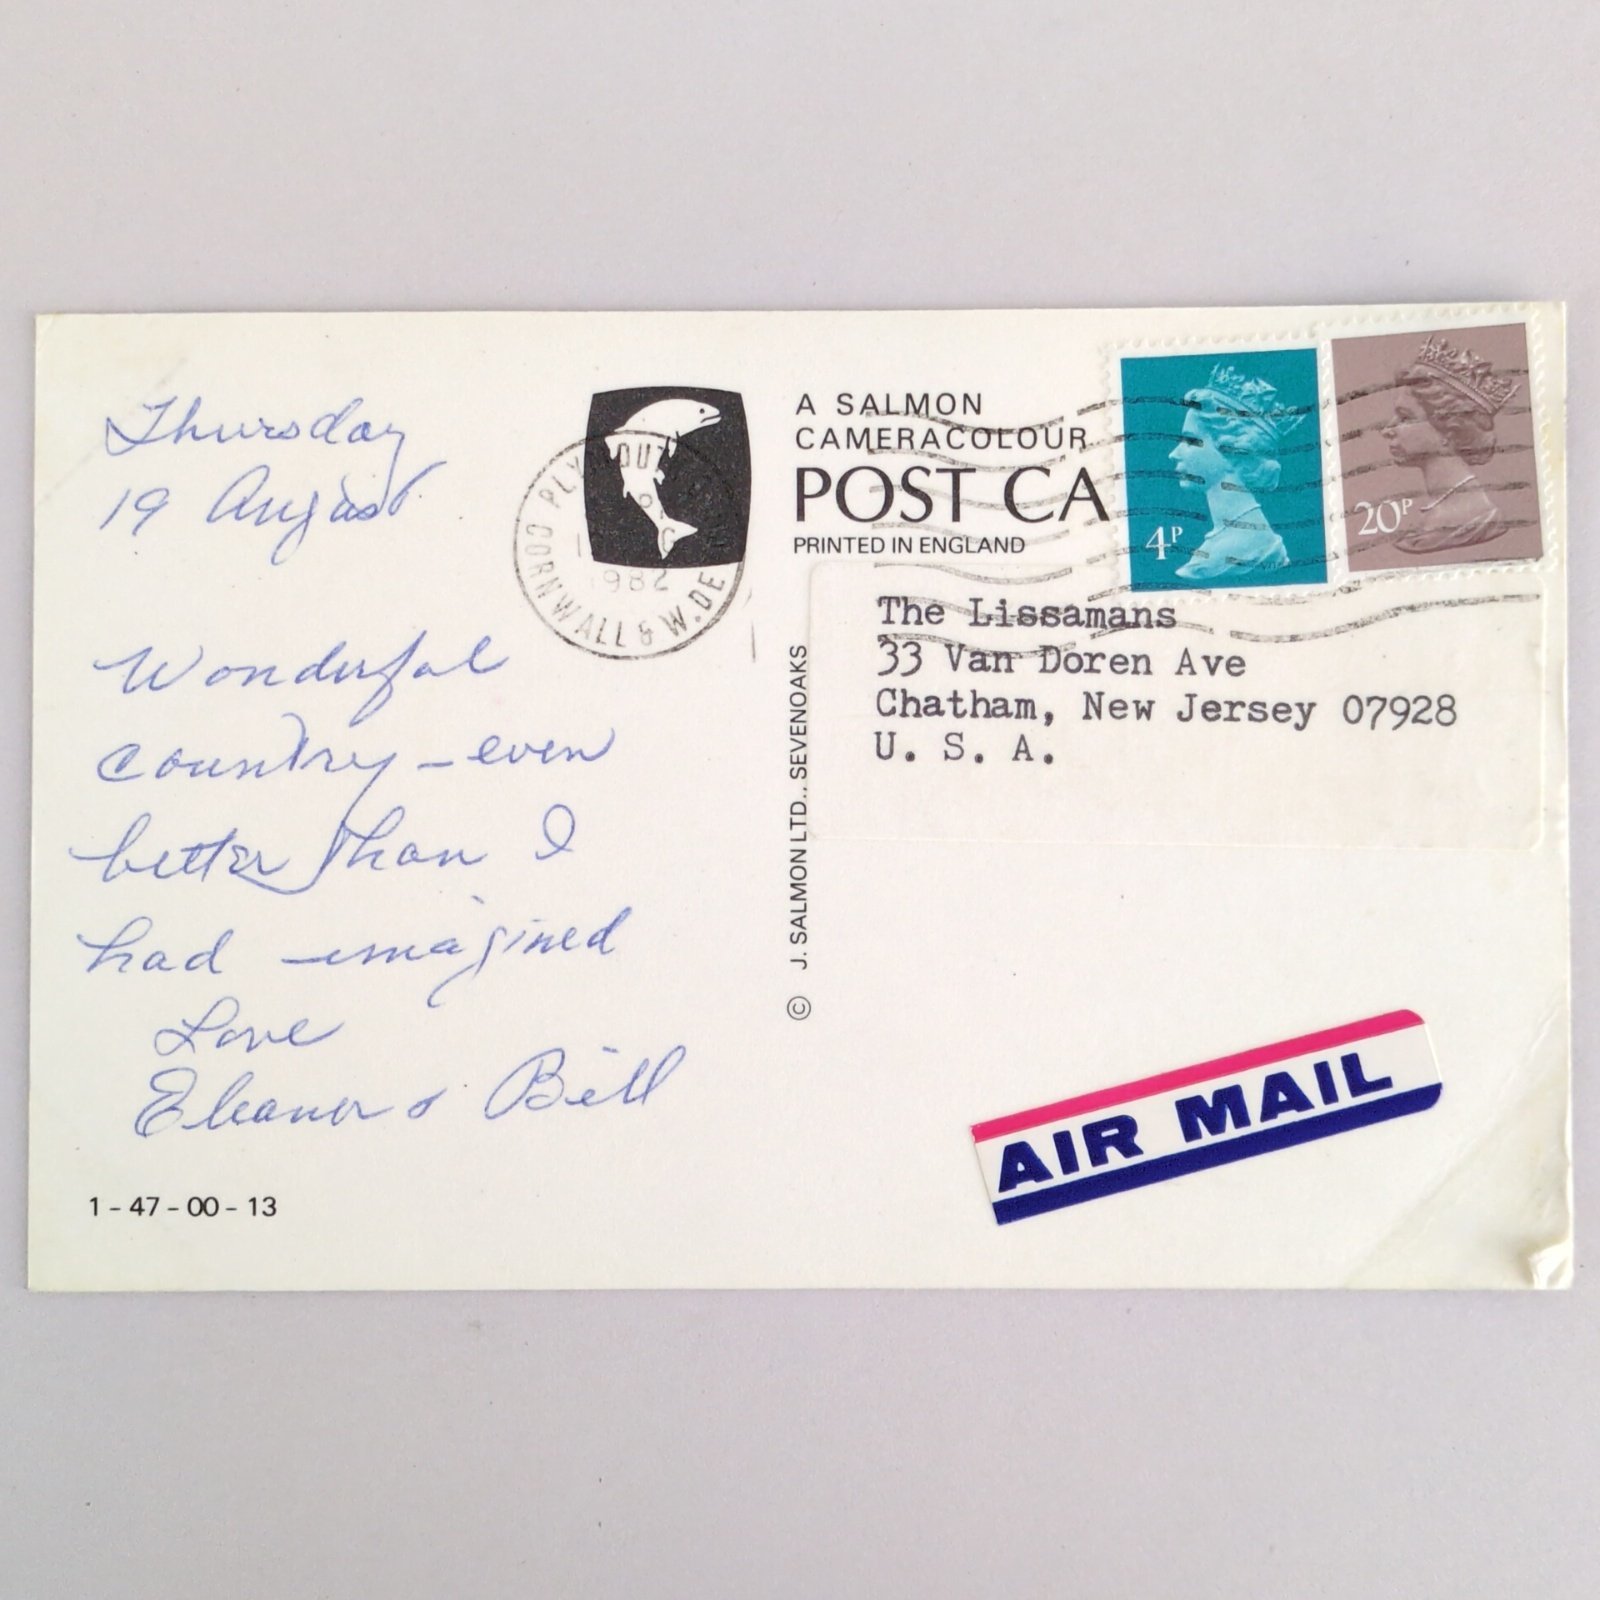 Thursday
19 August
Wonderful
country – even
better than I
had imagined
Love
Eleanor & Bill
1 - 47 - 00 - 13
PLYMOUTH
1982
CORNWALL & W. DE
© J. SALMON LTD., SEVENOAKS
A SALMON
CAMERACOLOUR
POST CA
PRINTED IN ENGLAND
4P
20P
The Lissamans
33 Van Doren Ave
Chatham, New Jersey 07928
U. S. A.
AIR MAIL